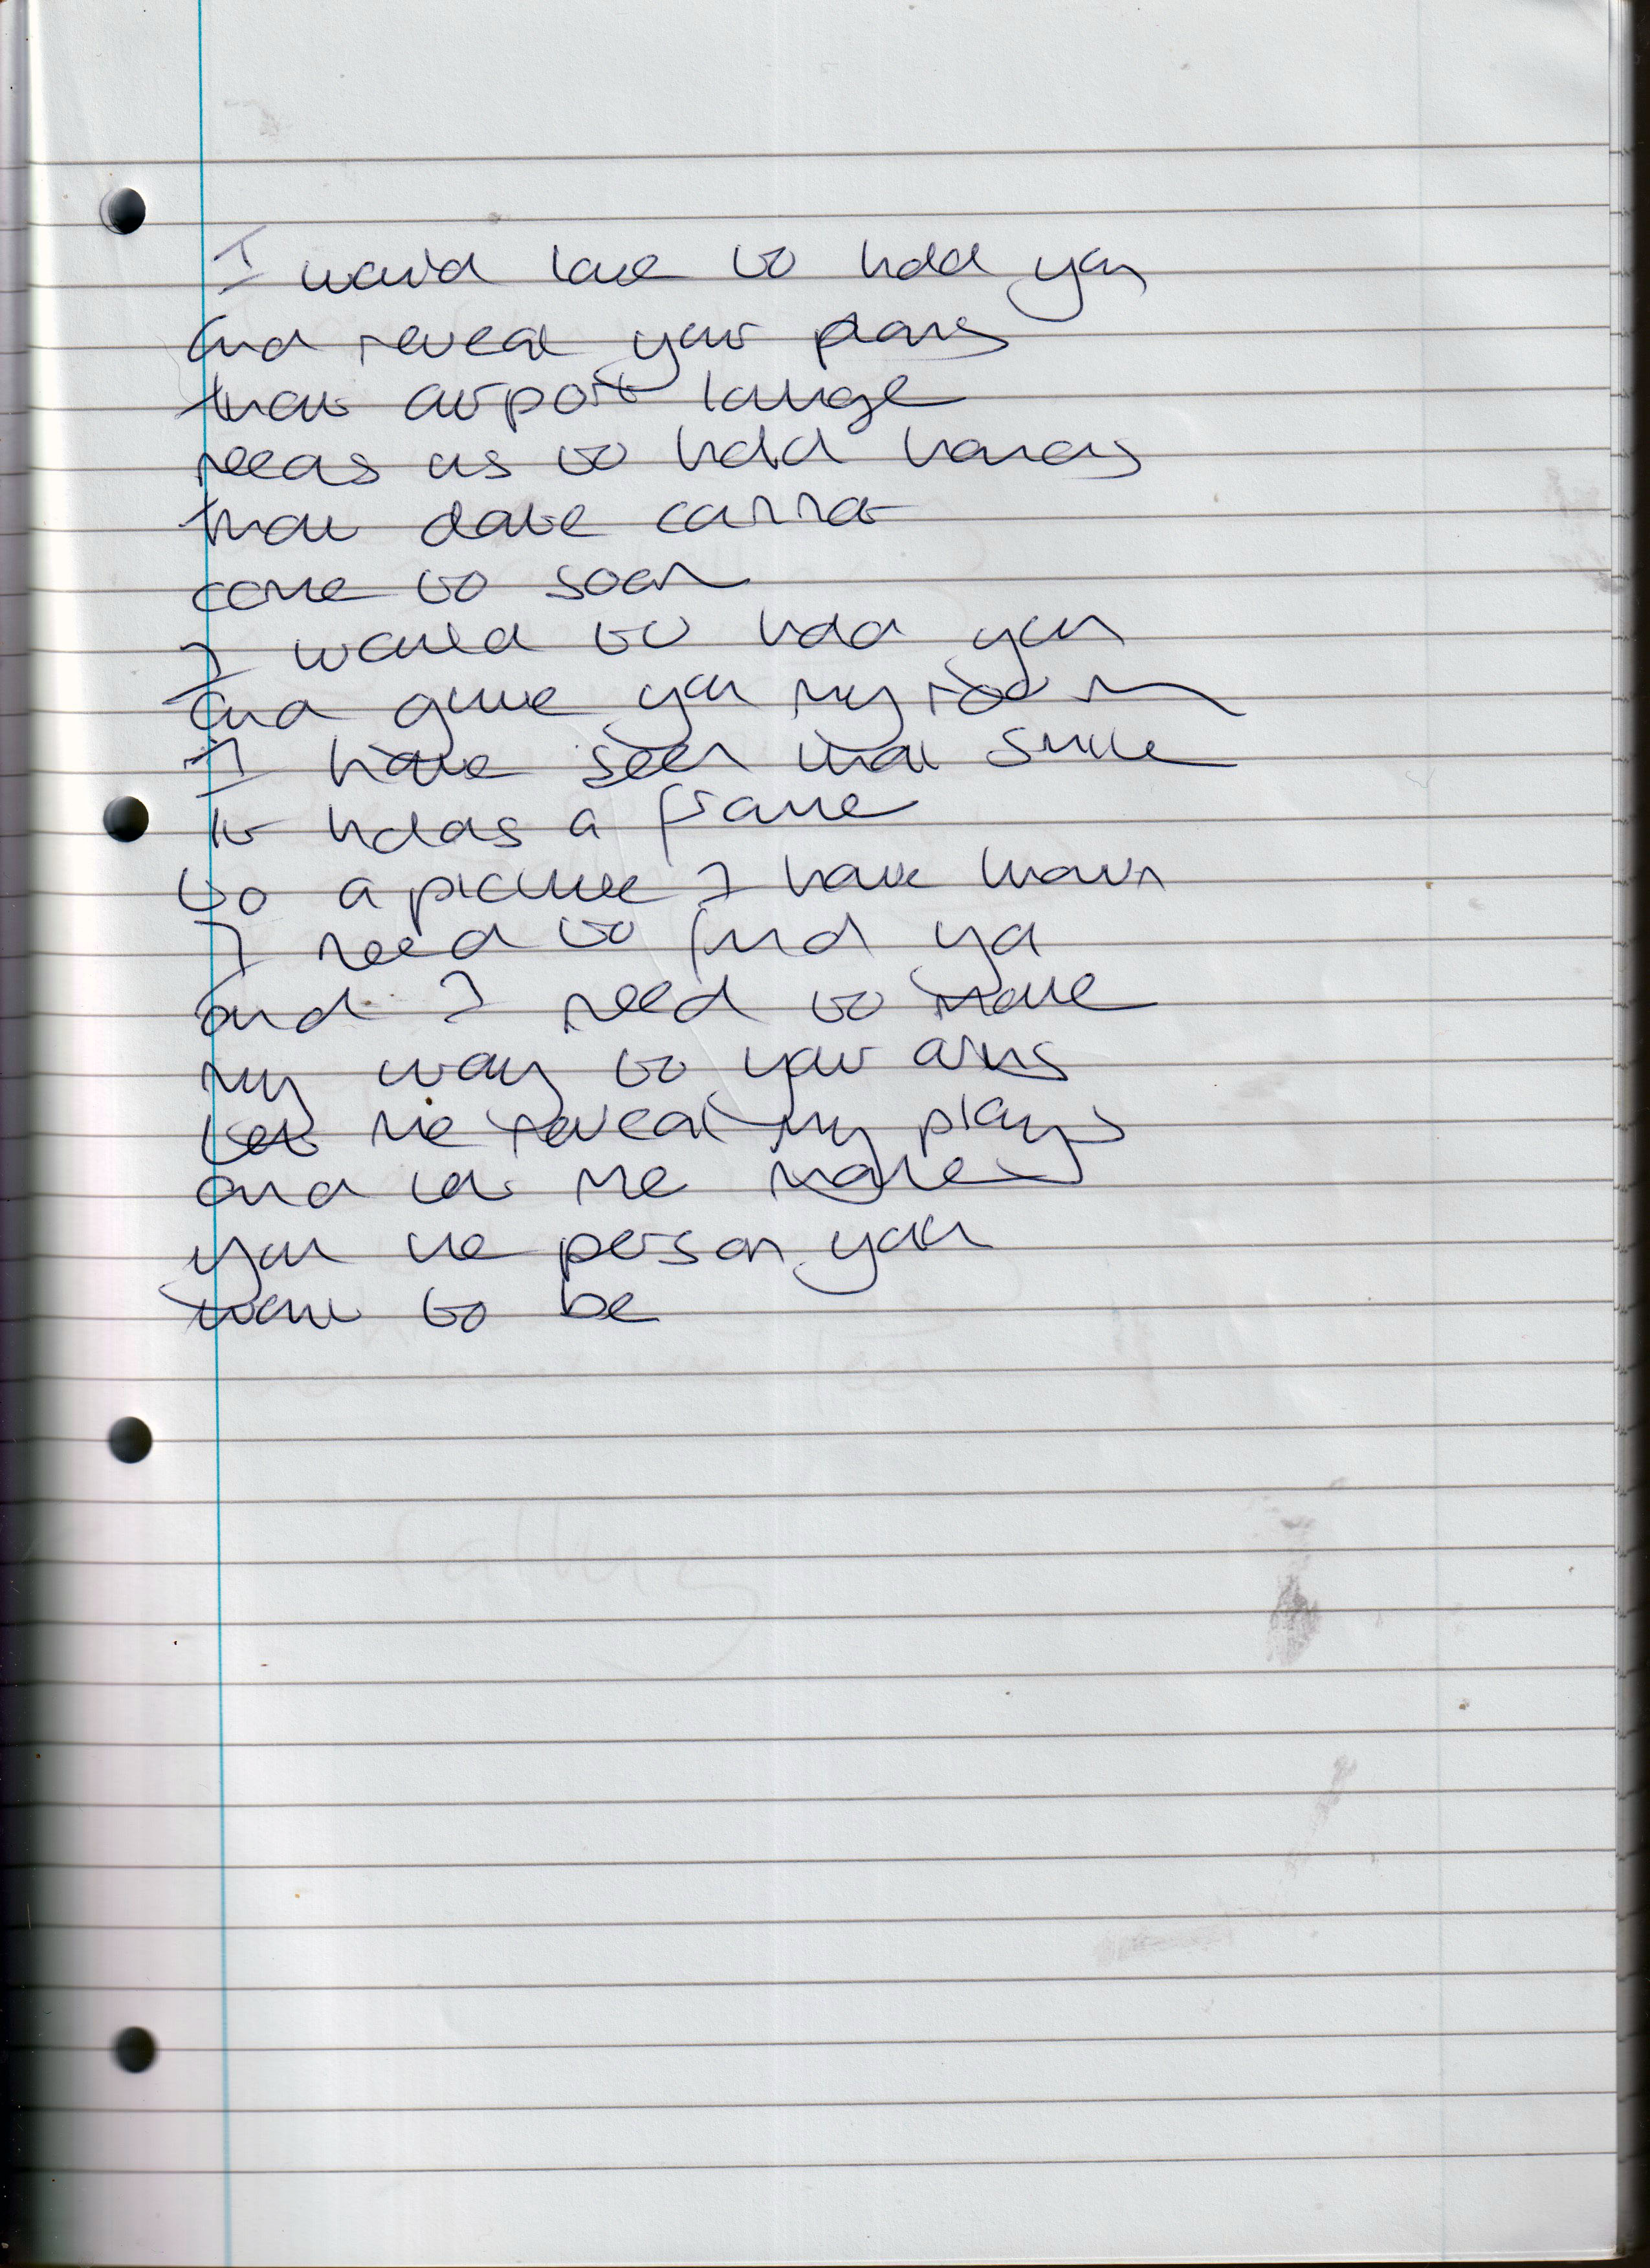 I would love to hold you
and reveal your plans
that airport lounge
needs us to hold hands
that date cannot
come to soon
I would to hold you
and give you my room
I have seen that smile
It holds a frame
to a picture I have known
I need to find ya
and I need to make
my way to your arms
let me reveal my plans
and let me make
you the person you
want to be
falling